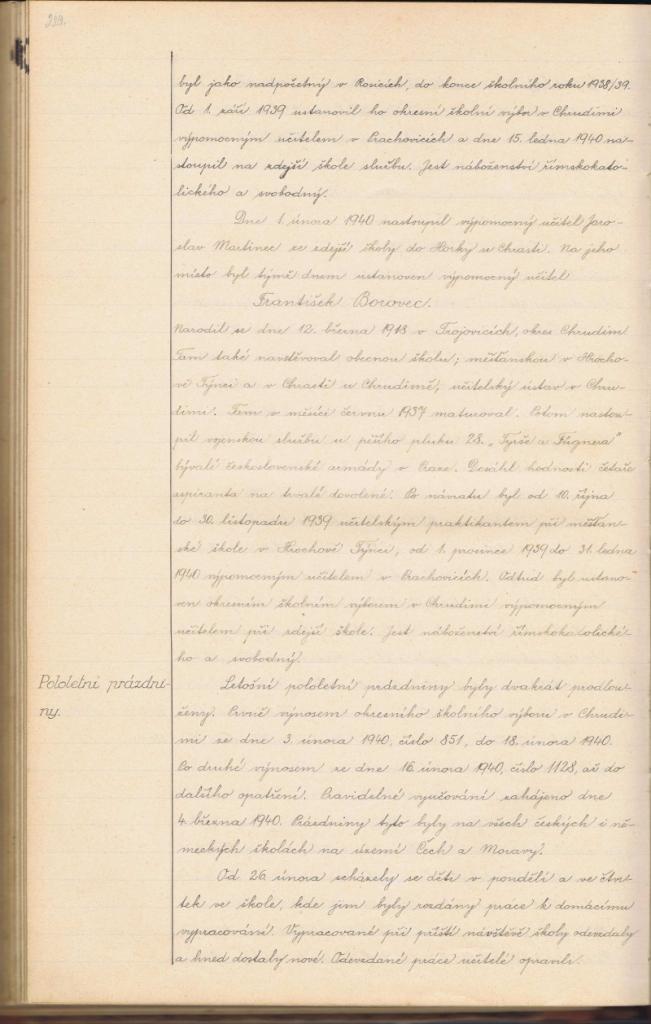 299.
byl jako nadpočetný v Rosicích, do konce školního roku 1938/39.
Od 1. září 1939 ustanovil ho okresní školní výbor v Chrudimi
výpomocným učitelem v Prachovicích a dne 15. ledna 1940 na-
stoupil na zdejší škole službu. Jest náboženství římskokato-
lického a svobodný.
Dne 1. února 1940 nastoupil výpomocný učitel Jaro-
slav Martinec ze zdejší školy do Horky u Chrasti. Na jeho
místo byl týmž dnem ustanoven výpomocný učitel
František Borovec.
Narodil se dne 12. března 1918 v Trojovicích, okres Chrudim
Tam také navštěvoval obecnou školu; měšťanskou v Hrocho-
vě Týnci a v Chrasti u Chrudimě, učitelský ústav v Chru-
dimi. Tam v měsíci červnu 1937 maturoval. Potom nastou-
pil vojenskou službu u pěšího pluku 28. „Tyrše a Fügnera"
bývalé československé armády v Praze. Dosáhl hodnosti četaře
aspiranta na trvalé dovolené. Po návratu byl od 10. října
do 30. listopadu 1939 učitelským praktikantem při měšťan-
ské škole v Hrochově Týnci, od 1. prosince 1939 do 31. ledna
1940 výpomocným učitelem v Prachovicích. Odtud byl ustano-
ven okresním školním výborem v Chrudimi výpomocným
učitelem při zdejší škole. Jest náboženství římskokatolické-
ho a svobodný.
Pololetní prázdni-
ny.
Letošní pololetní prázdniny byly dvakrát prodlou-
ženy. Prvně výnosem okresního školního výboru v Chrudi-
mi ze dne 3. února 1940, číslo 851, do 18. února 1940.
Po druhé výnosem ze dne 16. února 1940, číslo 1128, až do
dalšího opatření. Pravidelné vyučování zahájeno dne
4. března 1940. Prázdniny tyto byly na všech českých i ně-
meckých školách na území Čech a Moravy.
Od 26. února scházely se děti v pondělí a ve čtvr-
tek ve škole, kde jim byly rozdány práce k domácímu
vypracování. Vypracované při příští návštěvě školy odevzdaly
a hned dostaly nové. Odevzdané práce učitelé opravili.